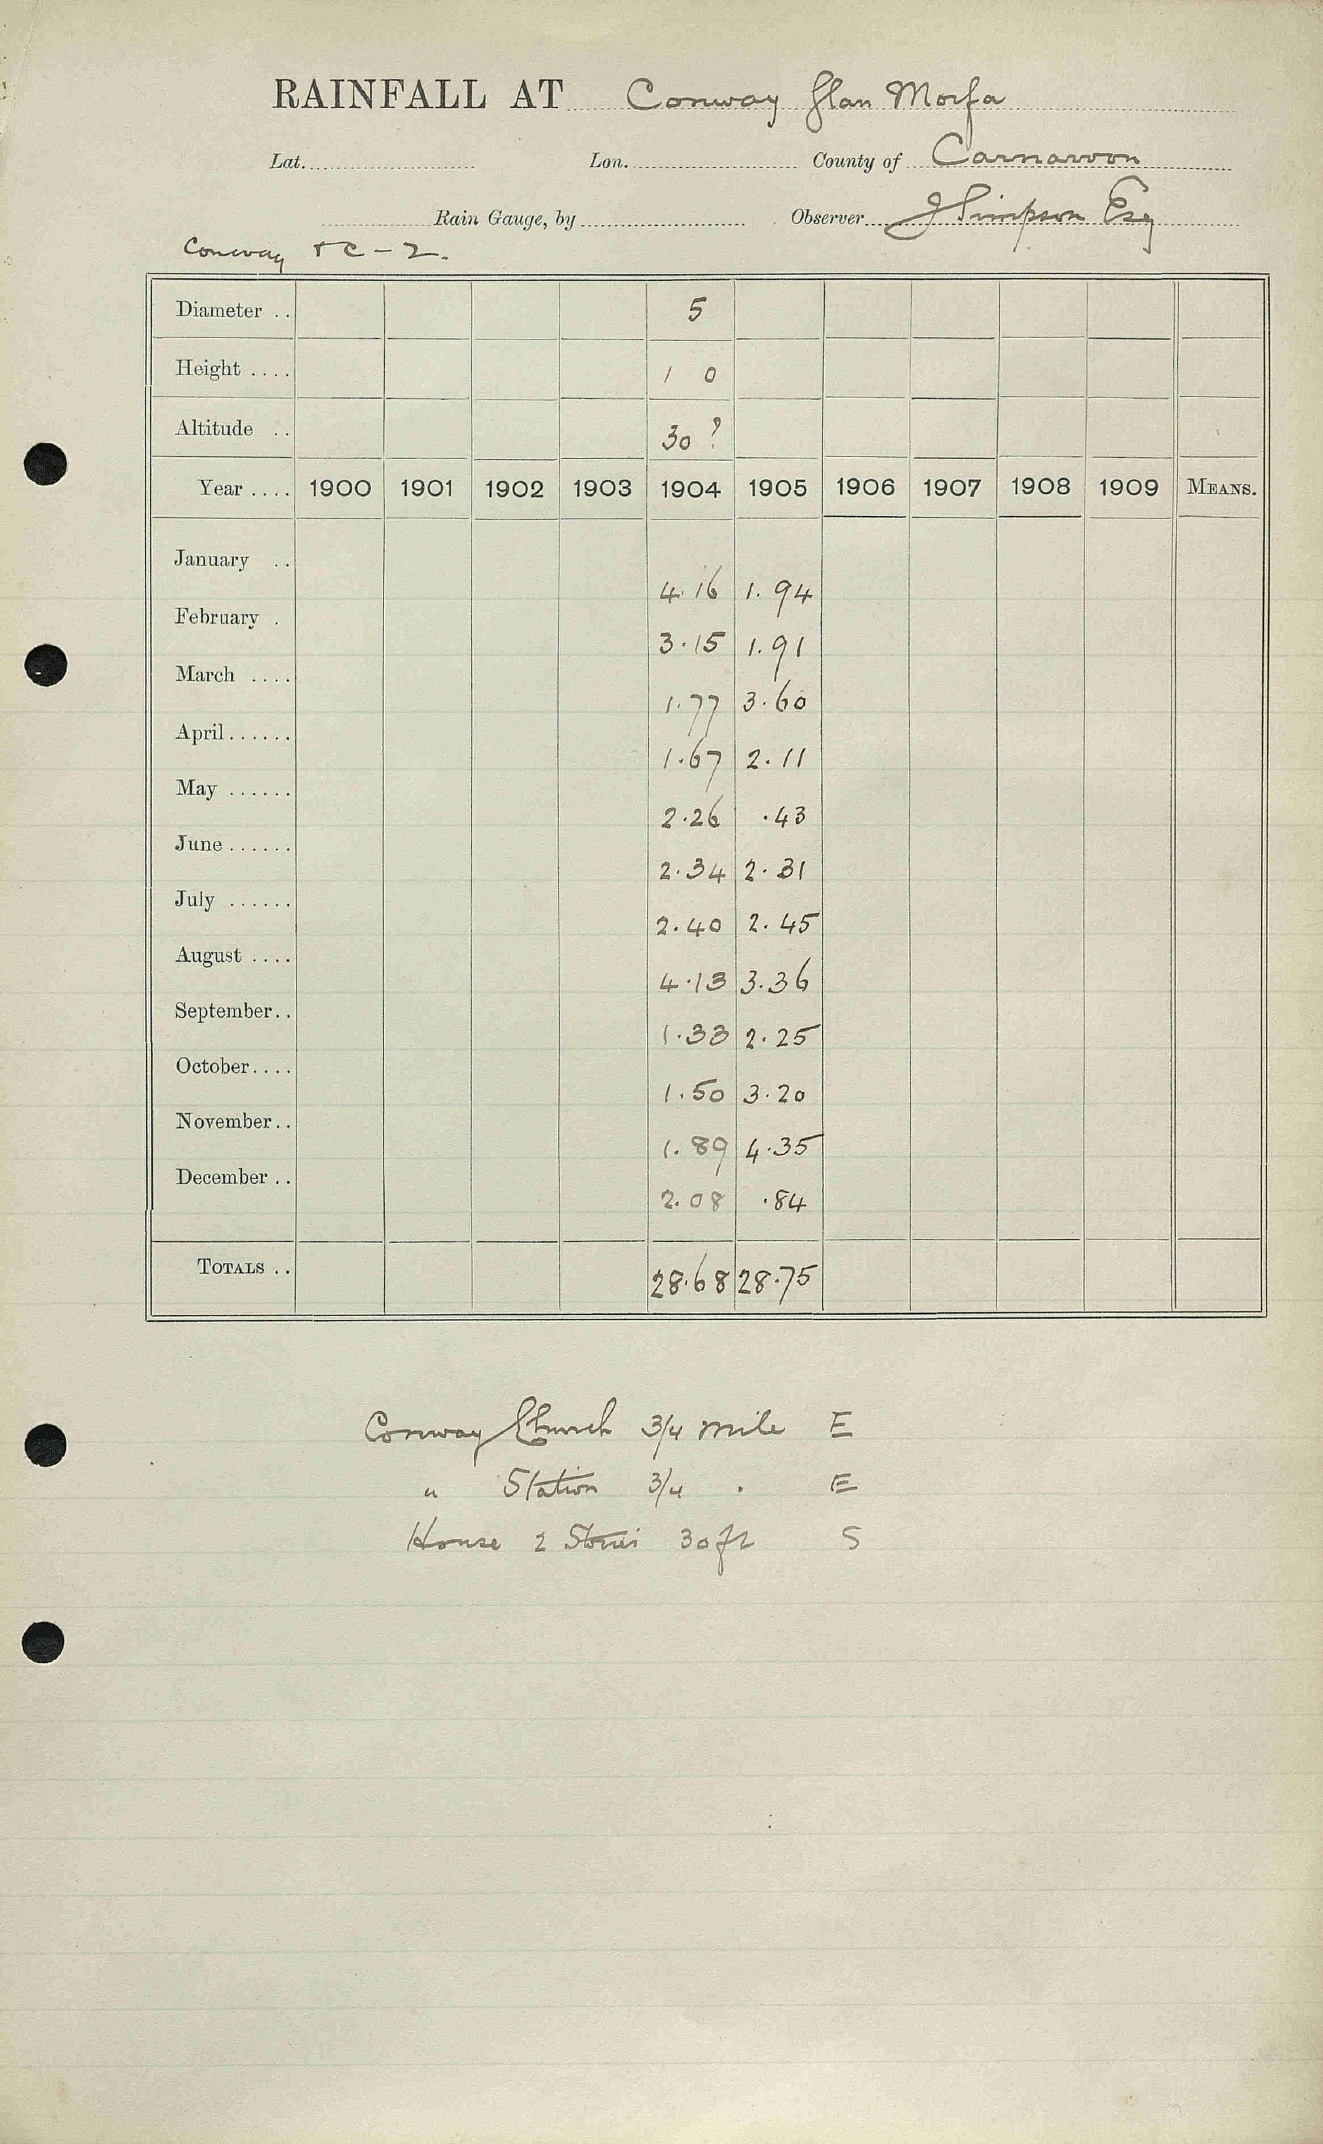 RAINFALL AT Conway Glan Morfa
Lat. Lon. County of Carnarvon
Rain Gauge, by Observer J Simpson Esq
Conway + C - 2.
Diameter .. 5
Height .... 1 0
Altitude .. 30 ?
Year .... 1900 1901 1902 1903 1904 1905 1906 1907 1908 1909 MEANS.
January .. 4.16 1.94
February . 3.15 1.91
March .... 1.77 3.60
April...... 1.67 2.11
May ...... 2.26 .43
June ...... 2.34 2.31
July ...... 2.40 2.45
August .... 4.13 3.36
September.. 1.33 2.25
October.... 1.50 3.20
November.. 1.89 4.35
December .. 2.08 .84
TOTALS .. 28.68 28.75
Conway Church 3/4 mile E
" Station 3/4 . E
House 2 Stories 30 ft S